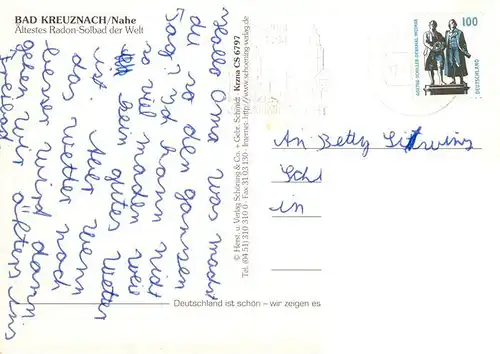 BAD KREUZNACH/Nahe
Ältestes Radon-Solbad der Welt
Hallo Oma was machst
du so den ganzen
Tag? Ich kann nicht
so viel machen weil
kein gutes Wetter
ist. Aber wenn
das Wetter noch
besser wird dann
gehen wir öfters ins
Freibad
© Herst. u. Verlag Schöning & Co. + Gebr. Schmidt
Krzna CS 6797
Tel. (04 51) 310 310 0 · Fax 31 03 130 · Internet: http://www.schoening-verlag.de
100
DEUTSCHLAND
GOETHE-SCHILLER-DENKMAL WEIMAR
An Betty
Schl
in
Deutschland ist schön – wir zeigen es